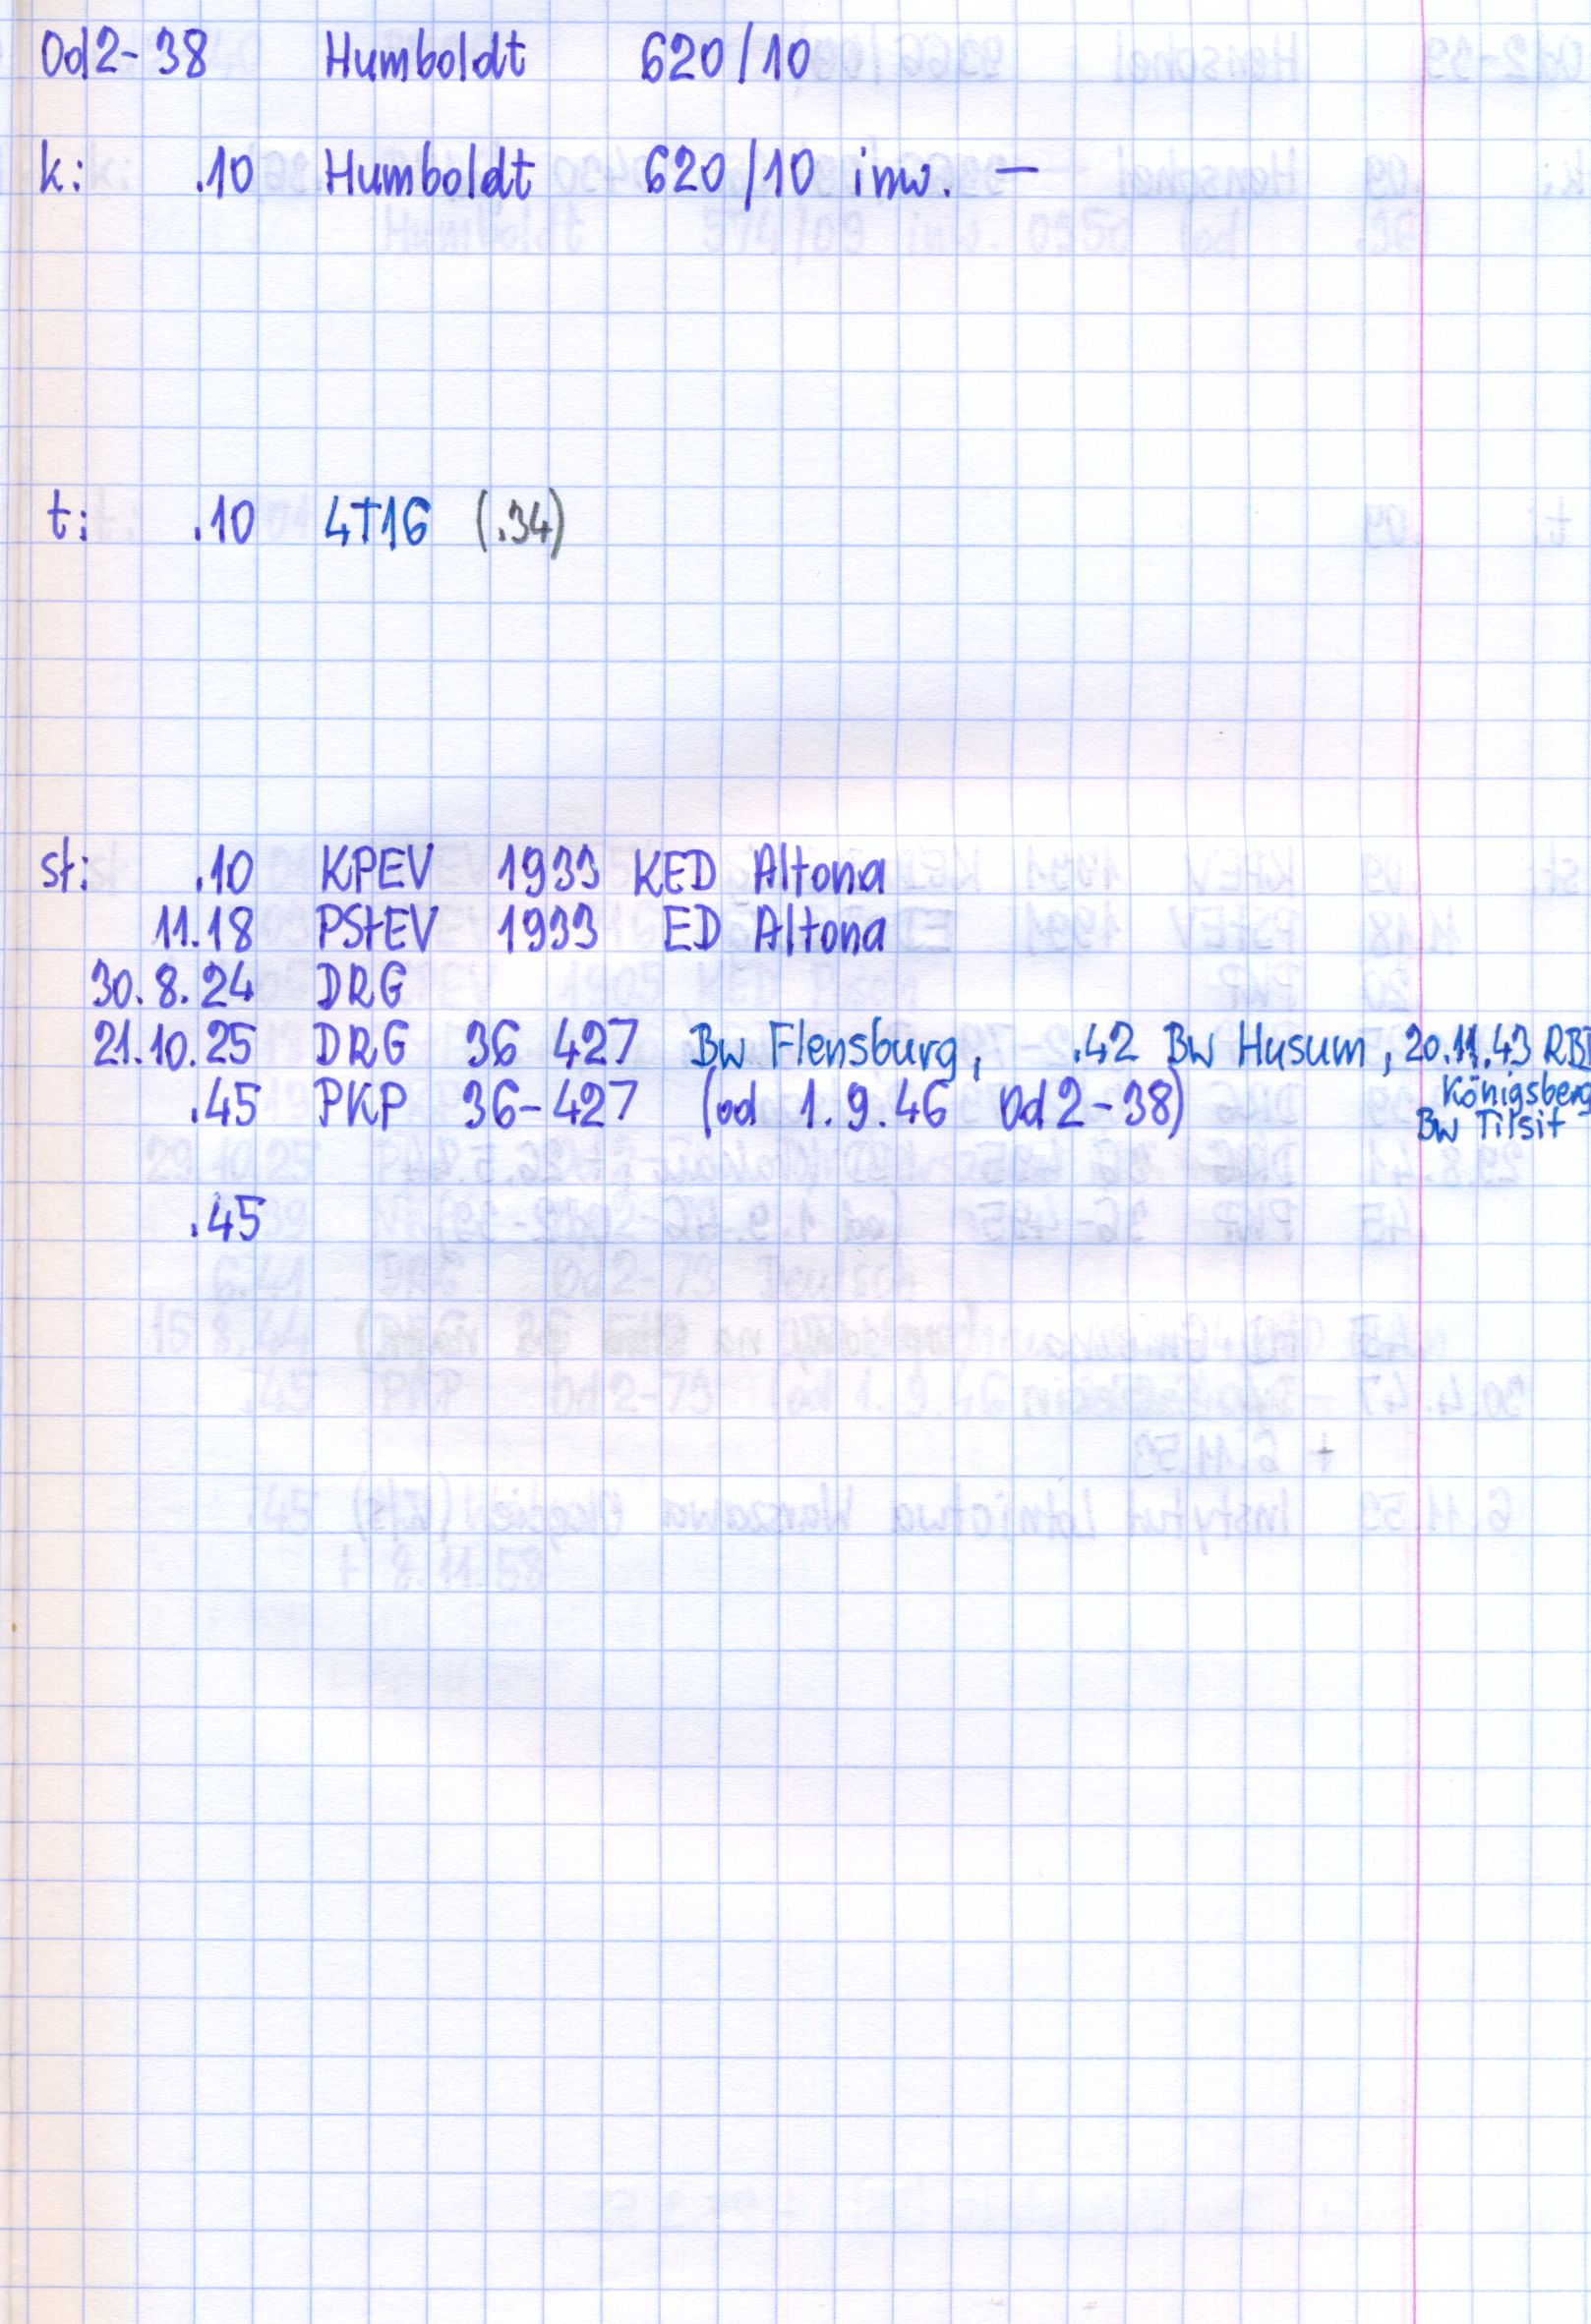 Od2-38 Humboldt 620/10
k: .10 Humboldt 620/10 inw. —
t: .10 4T16 (.34)
st: .10 KPEV 1933 KED Altona
11.18 PStEV 1933 ED Altona
30.8.24 DRG
21.10.25 DRG 36 427 Bw Flensburg, .42 Bw Husum, 20.11.43 RBD
Königsberg
.45 PKP 36-427 (od 1.9.46 Od2-38)
Bw Tilsit
.45